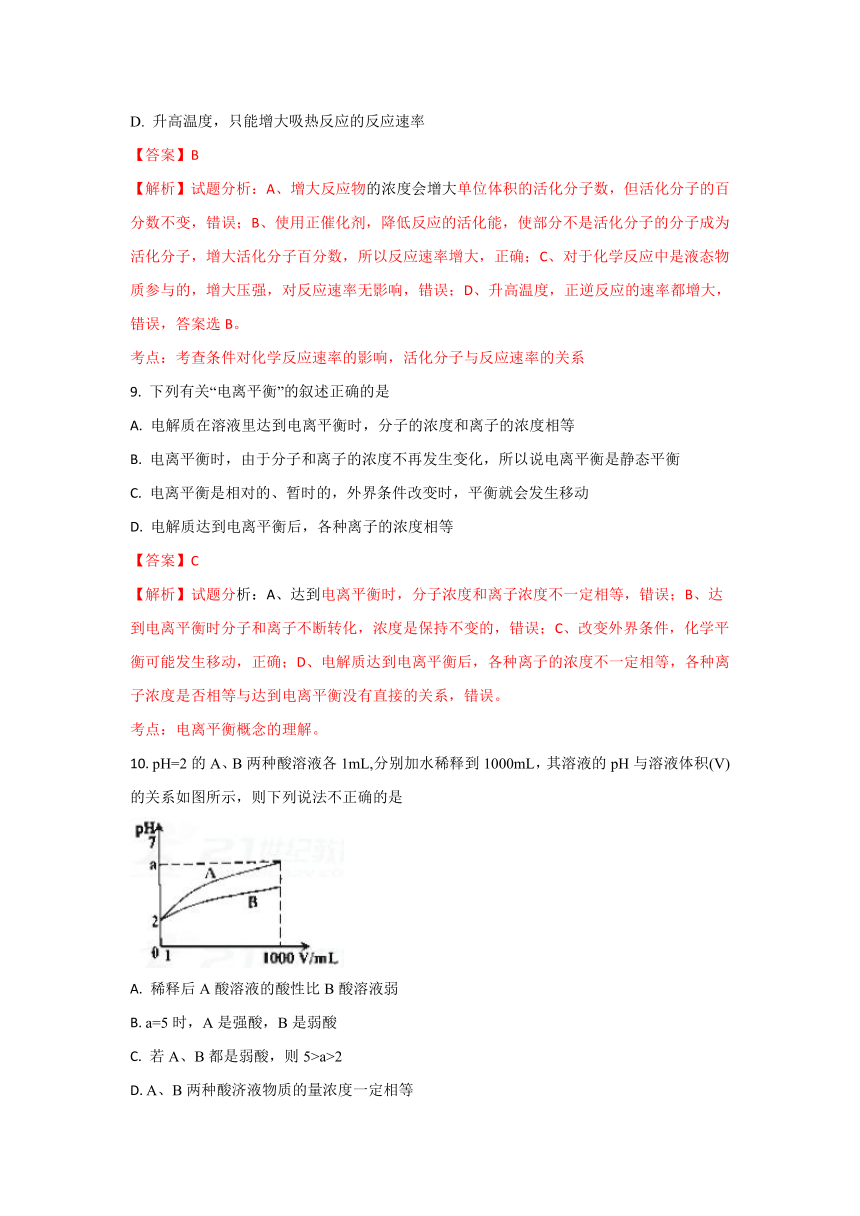 D. 升高温度，只能增大吸热反应的反应速率
【答案】B
【解析】试题分析：A、增大反应物的浓度会增大单位体积的活化分子数，但活化分子的百
分数不变，错误；B、使用正催化剂，降低反应的活化能，使部分不是活化分子的分子成为
活化分子，增大活化分子百分数，所以反应速率增大，正确；C、对于化学反应中是液态物
质参与的，增大压强，对反应速率无影响，错误；D、升高温度，正逆反应的速率都增大，
错误，答案选 B。
考点：考查条件对化学反应速率的影响，活化分子与反应速率的关系
9. 下列有关“电离平衡”的叙述正确的是
A. 电解质在溶液里达到电离平衡时，分子的浓度和离子的浓度相等
B. 电离平衡时，由于分子和离子的浓度不再发生变化，所以说电离平衡是静态平衡
C. 电离平衡是相对的、暂时的，外界条件改变时，平衡就会发生移动
D. 电解质达到电离平衡后，各种离子的浓度相等
【答案】C
【解析】试题分析：A、达到电离平衡时，分子浓度和离子浓度不一定相等，错误；B、达
到电离平衡时分子和离子不断转化，浓度是保持不变的，错误；C、改变外界条件，化学平
衡可能发生移动，正确；D、电解质达到电离平衡后，各种离子的浓度不一定相等，各种离
子浓度是否相等与达到电离平衡没有直接的关系，错误。
考点：电离平衡概念的理解。
10. pH=2 的 A、B 两种酸溶液各 1mL,分别加水稀释到 1000mL，其溶液的 pH 与溶液体积(V)
的关系如图所示，则下列说法不正确的是
pH
7
a
A
B
2
0 1 1000 V/mL
A. 稀释后 A 酸溶液的酸性比 B 酸溶液弱
B. a=5 时，A 是强酸，B 是弱酸
C. 若 A、B 都是弱酸，则 5>a>2
D. A、B 两种酸济液物质的量浓度一定相等